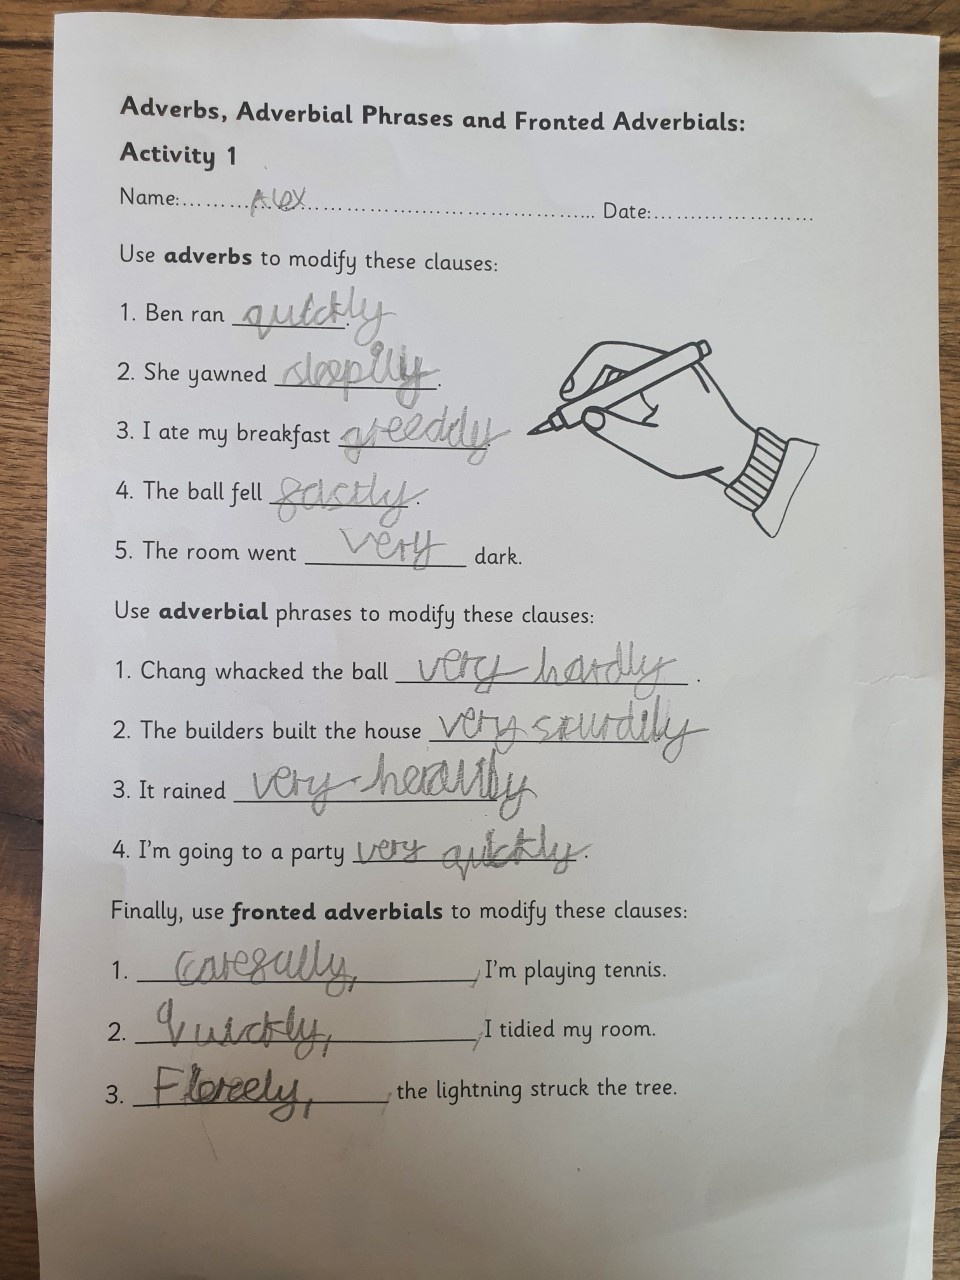 Adverbs, Adverbial Phrases and Fronted Adverbials:
Activity 1
Name:.........Alex....................................... Date:.......................
Use adverbs to modify these clauses:
1. Ben ran quickly.
2. She yawned sleepily.
3. I ate my breakfast greeddly
4. The ball fell fastly.
5. The room went very dark.
Use adverbial phrases to modify these clauses:
1. Chang whacked the ball very hardly.
2. The builders built the house very sturdily
3. It rained very heavily
4. I'm going to a party very quickly.
Finally, use fronted adverbials to modify these clauses:
1. Carefully, , I'm playing tennis.
2. Quickly, , I tidied my room.
3. Fiercely, , the lightning struck the tree.